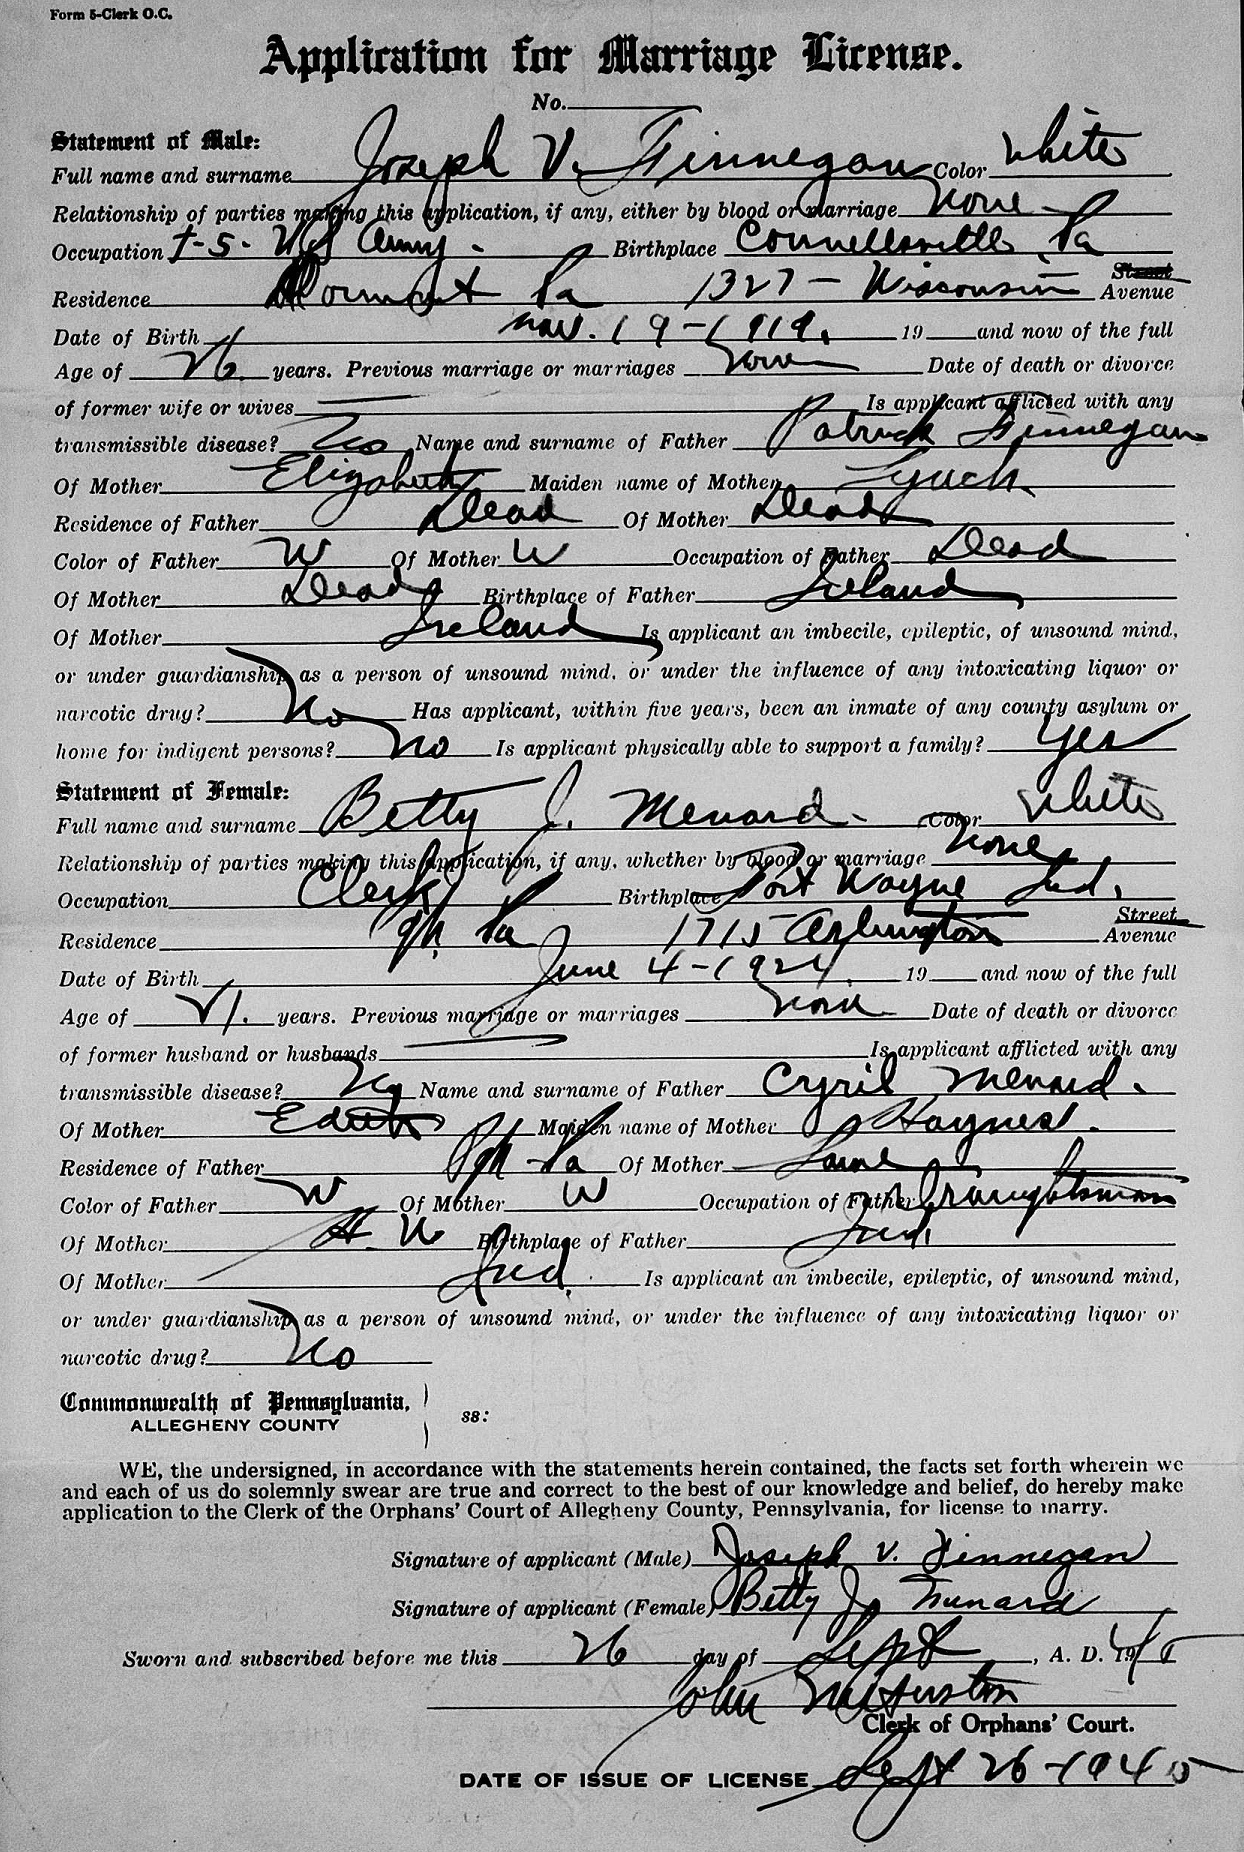 Form 5-Clerk O.C.
Application for Marriage License.
No.
Statement of Male:
Full name and surname Joseph V. Finnegan Color White
Relationship of parties making this application, if any, either by blood or marriage None
Occupation T-5. US Army. Birthplace Connellsville, Pa
Residence Dormont Pa 1327 - Wisconsin Street Avenue
Date of Birth Nov. 19-1919. 19 and now of the full
Age of 26 years. Previous marriage or marriages None Date of death or divorce
of former wife or wives Is applicant afflicted with any
transmissible disease? No Name and surname of Father Patrick Finnegan
Of Mother Elizabeth Maiden name of Mother Lynch
Residence of Father Dead Of Mother Dead
Color of Father W Of Mother W Occupation of Father Dead
Of Mother Dead Birthplace of Father Ireland
Of Mother Ireland Is applicant an imbecile, epileptic, of unsound mind,
or under guardianship as a person of unsound mind, or under the influence of any intoxicating liquor or
narcotic drug? No Has applicant, within five years, been an inmate of any county asylum or
home for indigent persons? No Is applicant physically able to support a family? Yes
Statement of Female:
Full name and surname Betty J. Menard. Color White
Relationship of parties making this application, if any, whether by blood or marriage None
Occupation Clerk Birthplace Fort Wayne Ind.
Residence Pgh. Pa 1715 Arlington Street Avenue
Date of Birth June 4-1924 19 and now of the full
Age of 21. years. Previous marriage or marriages None Date of death or divorce
of former husband or husbands Is applicant afflicted with any
transmissible disease? No Name and surname of Father Cryril Menard.
Of Mother Edith Maiden name of Mother Haynes.
Residence of Father Pgh - Pa Of Mother Same
Color of Father W Of Mother W Occupation of Father Draughtsman
Of Mother H. W Birthplace of Father Ind.
Of Mother Ind. Is applicant an imbecile, epileptic, of unsound mind,
or under guardianship as a person of unsound mind, or under the influence of any intoxicating liquor or
narcotic drug? No
Commonwealth of Pennsylvania,
ALLEGHENY COUNTY
ss:
WE, the undersigned, in accordance with the statements herein contained, the facts set forth wherein we
and each of us do solemnly swear are true and correct to the best of our knowledge and belief, do hereby make
application to the Clerk of the Orphans' Court of Allegheny County, Pennsylvania, for license to marry.
Signature of applicant (Male) Joseph V. Finnegan
Signature of applicant (Female) Betty J. Menard
Sworn and subscribed before me this 26 day of Sept , A. D. 1945
John
Clerk of Orphans' Court.
DATE OF ISSUE OF LICENSE Sept 26-1945